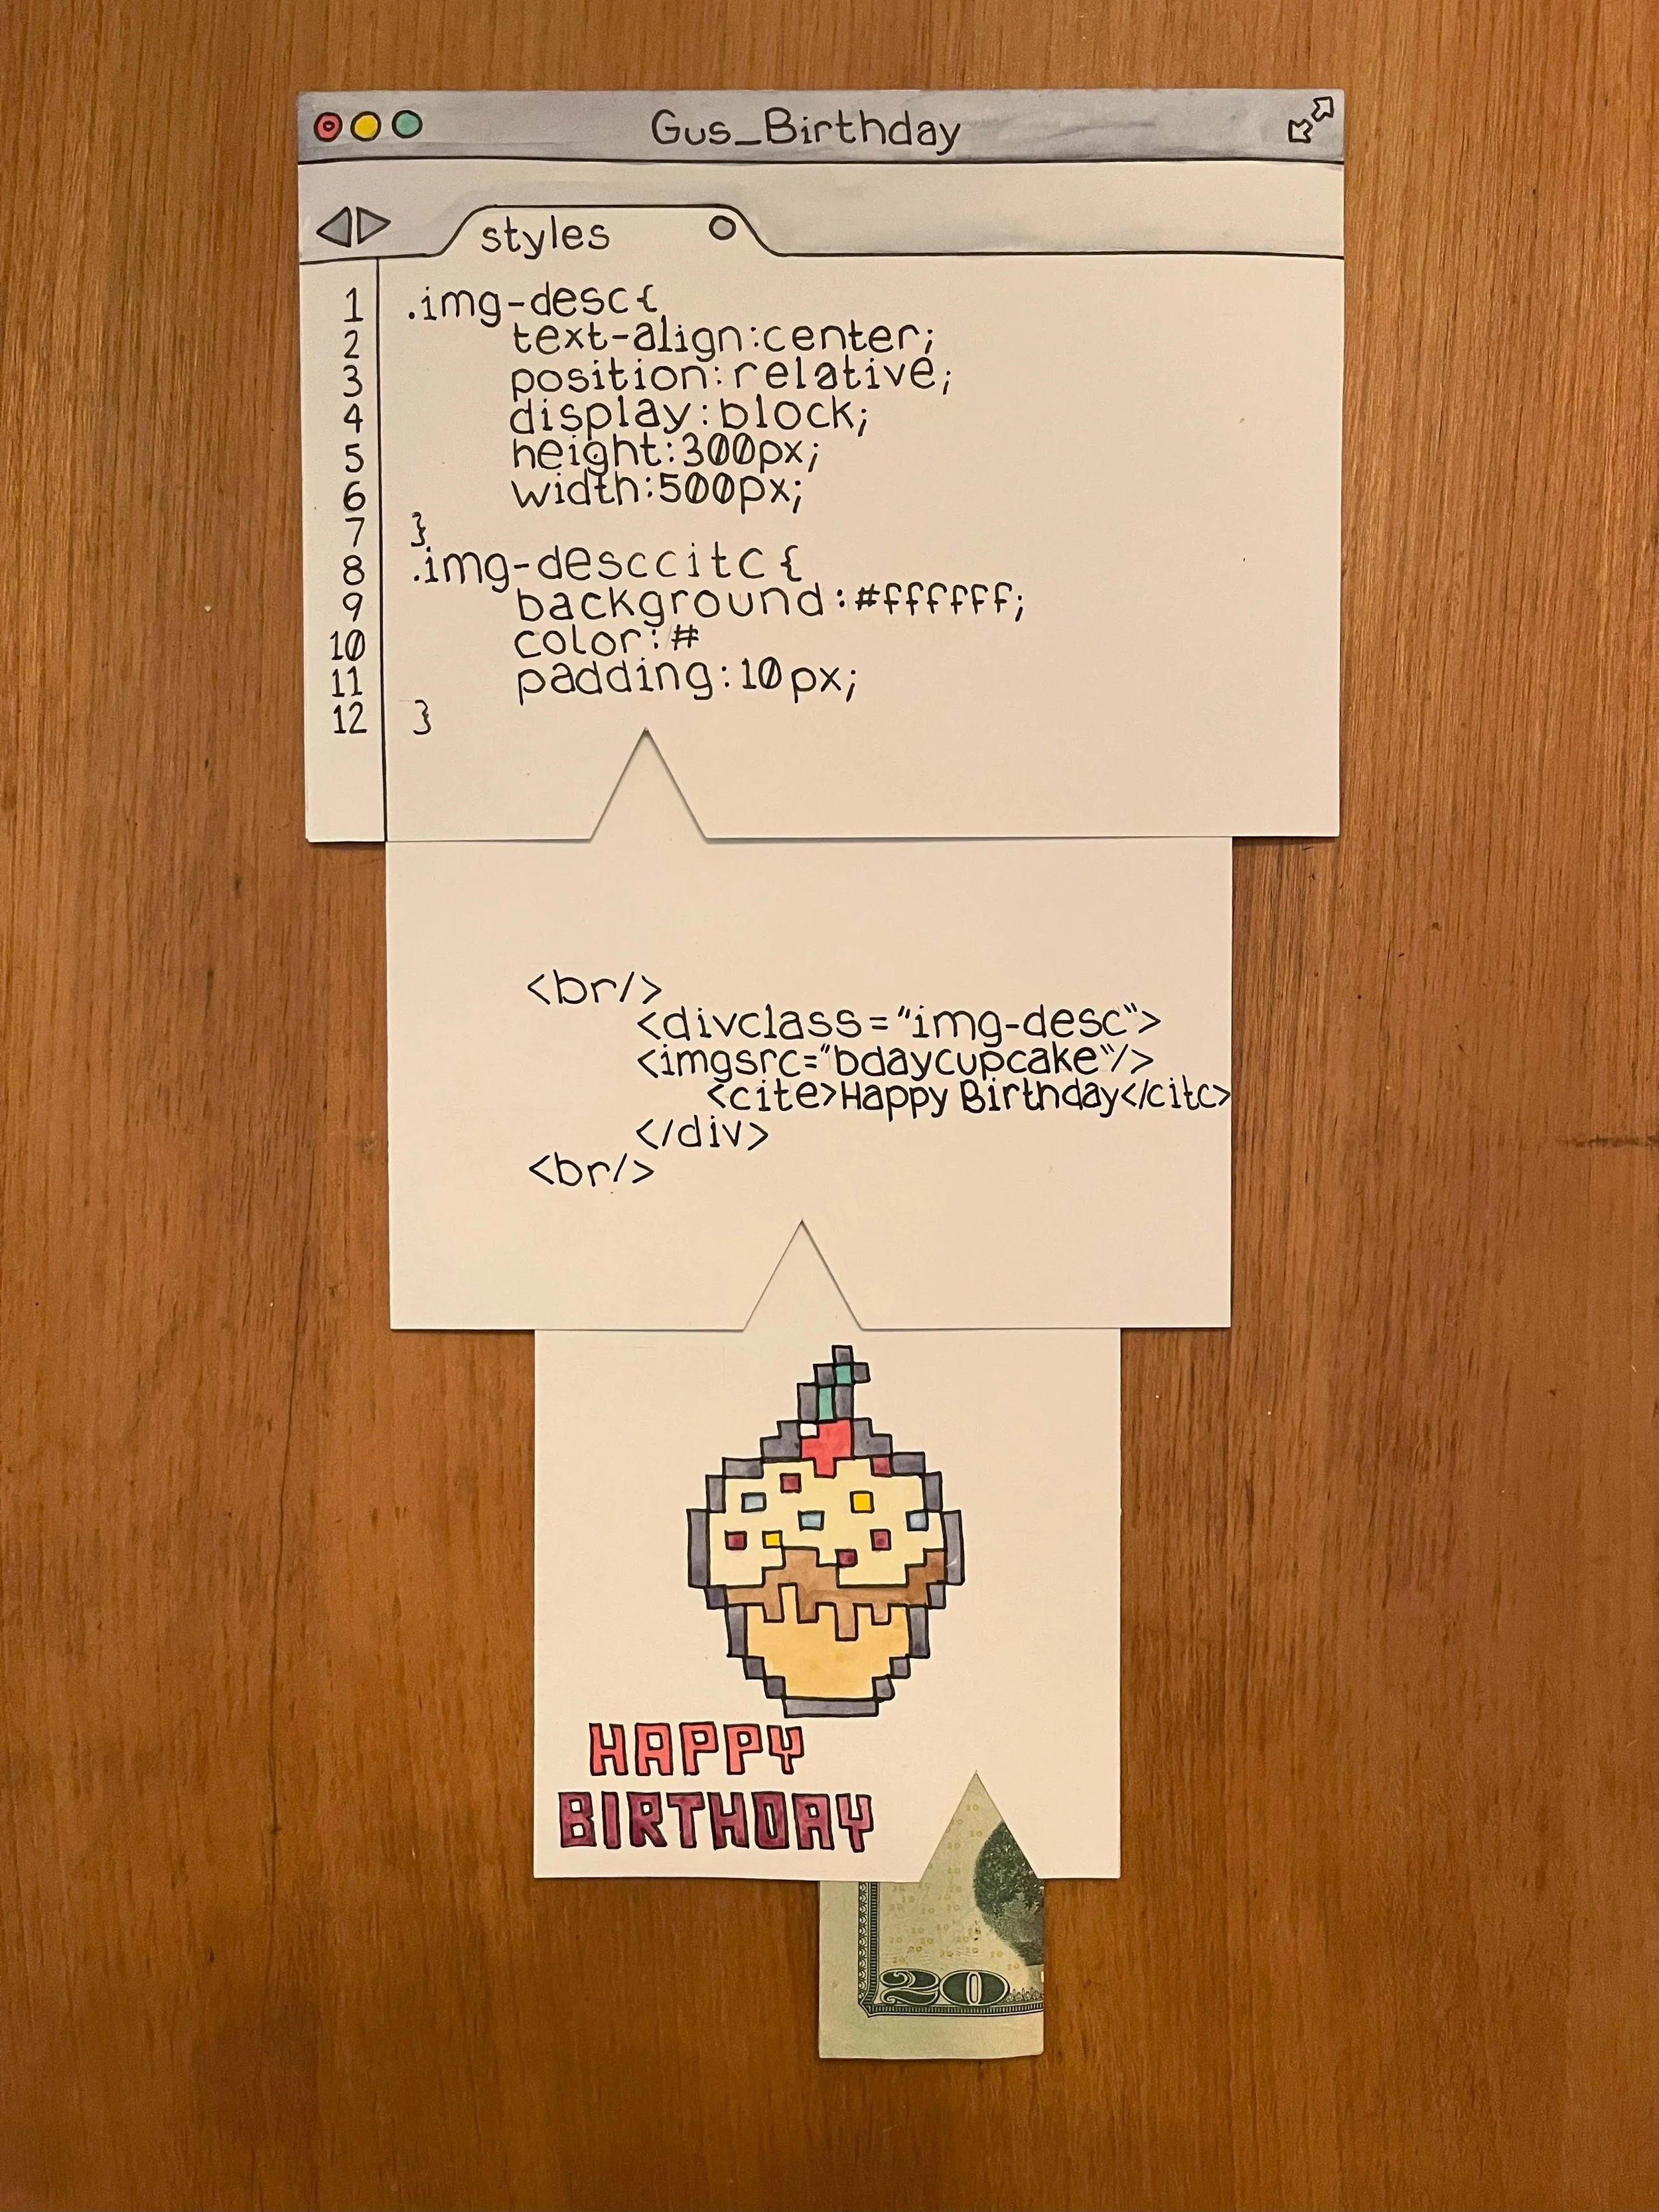 Gus_Birthday
styles
1 .img-desc{
2 text-align:center;
3 position:relative;
4 display:block;
5 height:300px;
6 width:500px;
7 }
8 .img-desccitc{
9 background:#ffffff;
10 color:#
11 padding:10px;
12 }
<br/>
<divclass="img-desc">
<imgsrc="bdaycupcake"/>
<cite>Happy Birthday</citc>
</div>
<br/>
HAPPY
BIRTHDAY
20